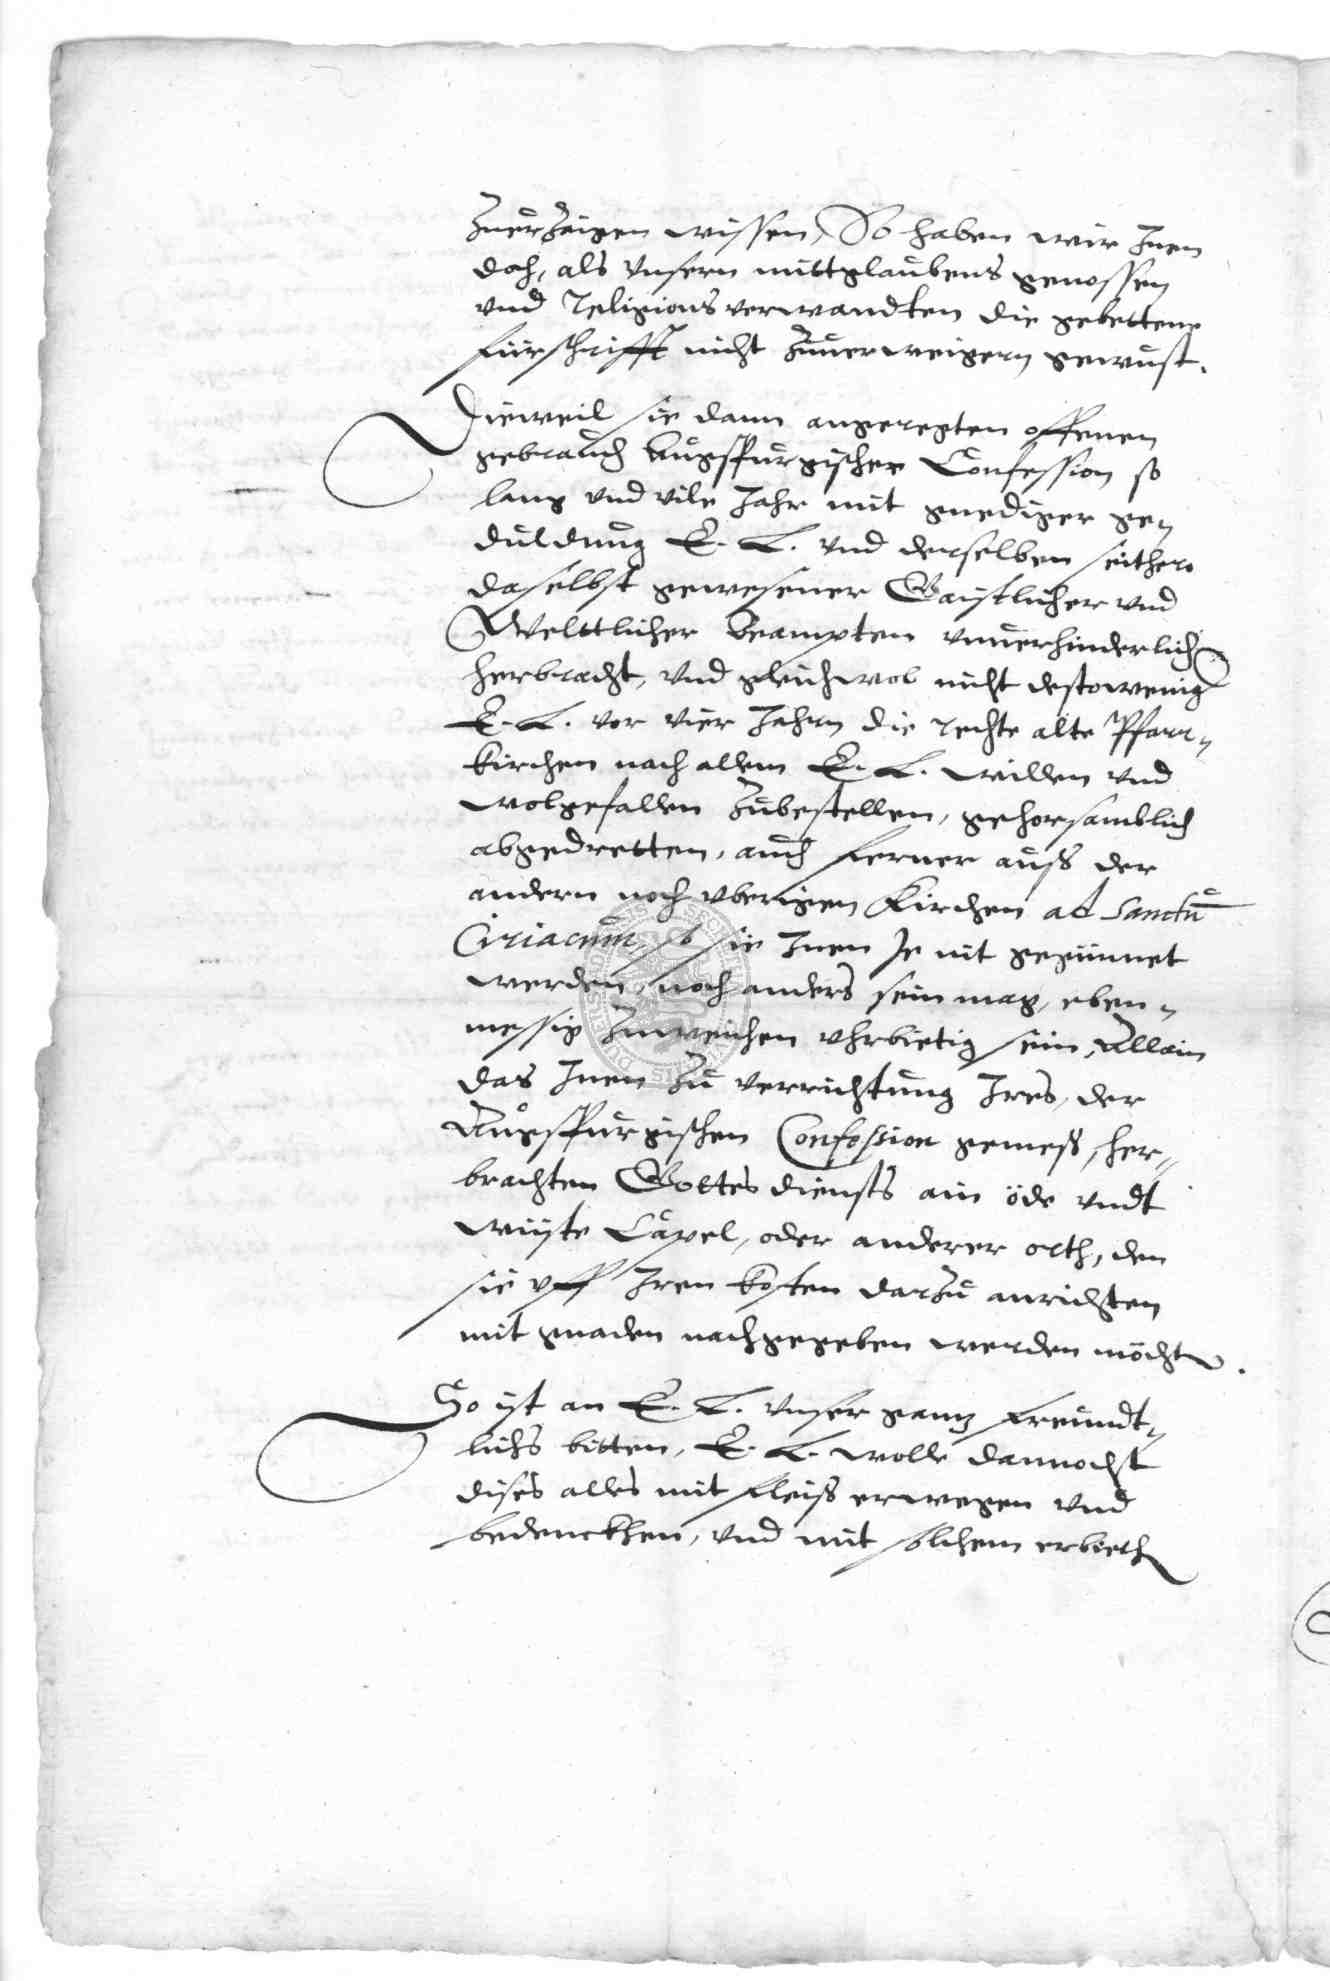 Zuerzaigen wissen, So haben wir Inen
doch, als Unsern mittglaubens genossen
und Religionsverwandten die gebettene
fürschrifft nicht Zuuerweigern gewust.
Dieweil sie dann angeregten offenen
gebrauch Augspurgischer Confession so
lang und vile Jahr mit gnediger ge„
duldung E. L. und derselben seithero
daselbst gewesener Gaistlicher und
Welttlicher Beampten unuerhinderlich
herbracht, und gleichwol nicht destowenig
E. L. vor vier Jahrn die rechte alte Pfarr„
kirchen nach allem E. L. willen und
wolgefallen Zubestellen, gehorsamblich
abgedretten, auch ferner auss der
andern noch uberigen Kirchen ad Sanctū
Ciriacum, so sie Inen Je nit gegünnet
werden, noch anders sein mag, eben„
messig Zuweichen uhrbietig sein, Allain
das Inen Zu verrichtung Ires, der
Augspurgischen Confession gemess, her„
brachten Gottesdiensts ain öde undt
wüste Capel, oder anderer orth, den
sie uff Iren kosten darzu anrichten
mit gnaden nachgegeben werden möchte.
So ist an E. L. unser gantz freundt„
lichs bitten, E. L. wolle dannocht
dises alles mit fleiss erwegen und
bedenckhen, und mit solchem erbieth